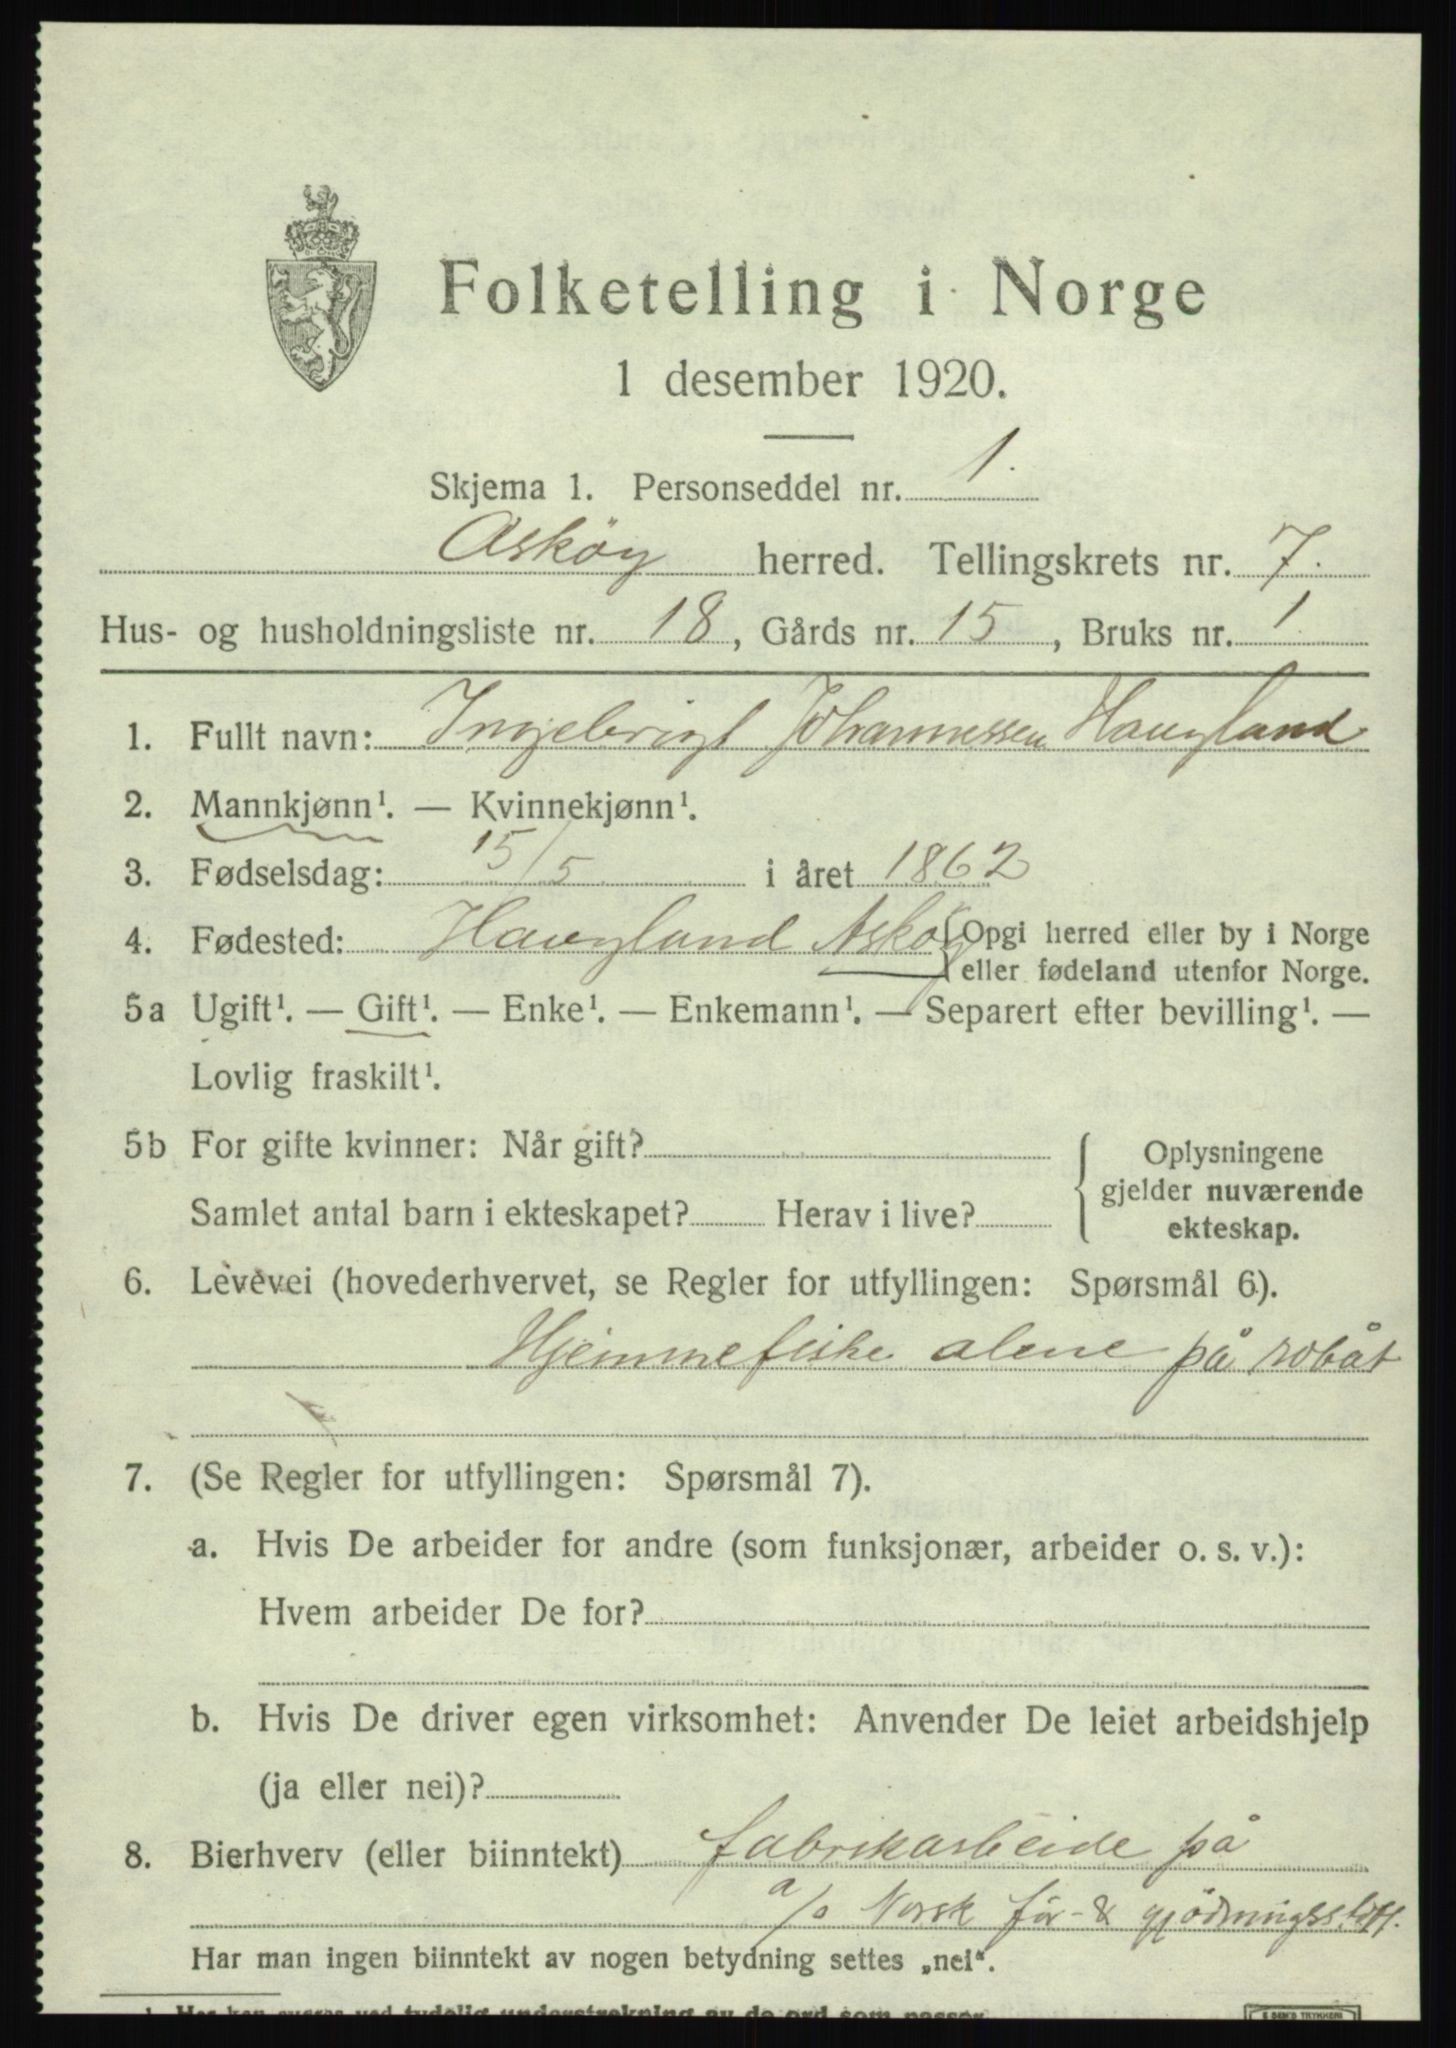 Folketelling i Norge
1 desember 1920.
Skjema 1. Personseddel nr. 1.
Asköy herred. Tellingskrets nr. 7.
Hus- og husholdningsliste nr. 18, Gårds nr. 15, Bruks nr. 1
1. Fullt navn: Ingebrigt Johannessen Haugland
2. Mannkjønn¹. — Kvinnekjønn¹.
3. Fødselsdag: 15/5 i året 1862
4. Fødested: Haugland Askøy {Opgi herred eller by i Norge
eller fødeland utenfor Norge.
5a Ugift¹. — Gift¹. — Enke¹. — Enkemann¹. — Separert efter bevilling¹. —
Lovlig fraskilt¹.
5b For gifte kvinner: Når gift?
Samlet antal barn i ekteskapet? Herav i live?
Oplysningene
gjelder nuværende
ekteskap.
6. Levevei (hovederhvervet, se Regler for utfyllingen: Spørsmål 6).
Hjemmefiske alene på robåt
7. (Se Regler for utfyllingen: Spørsmål 7).
a. Hvis De arbeider for andre (som funksjonær, arbeider o. s. v.):
Hvem arbeider De for?
b. Hvis De driver egen virksomhet: Anvender De leiet arbeidshjelp
(ja eller nei)?
8. Bierhverv (eller biinntekt) fabrikarbeide på
a/s Norsk för- & gjödningsstoff.
Har man ingen biinntekt av nogen betydning settes „nei“.
¹ Her kan svares ved tydelig understrekning av de ord som passer.